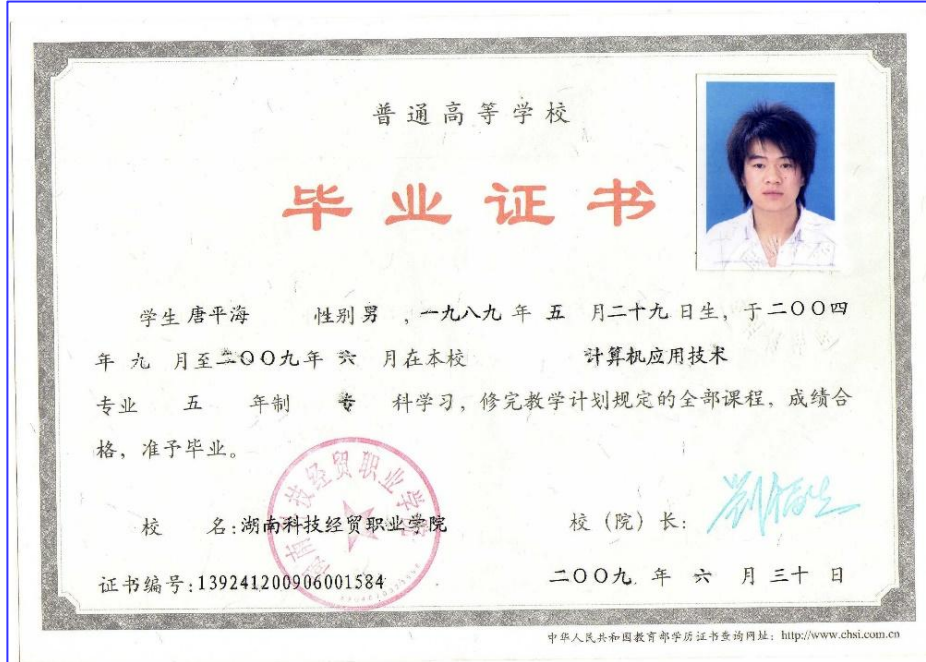 普通高等学校
毕业证书
学生 唐平海 性别 男 , 一九八九 年 五 月 二十九 日生, 于 二〇〇四
年 九 月至 二〇〇九 年 六 月在本校 计算机应用技术
专业 五 年制 专 科学习, 修完教学计划规定的全部课程, 成绩合
格, 准予毕业。
校 名: 湖南科技经贸职业学院
校 (院) 长:
湖南科技经贸职业学院
证书编号: 139241200906001584
二〇〇九 年 六 月 三十 日
中华人民共和国教育部学历证书查询网址: http://www.chsi.com.cn